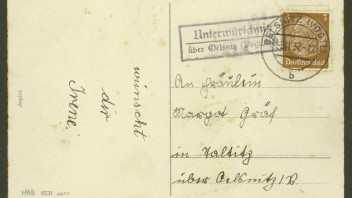 wünscht
dir
Irene.
Unterwürschnitz
über Oelsnitz (Vogtl.)
OELSNITZ (VOGTL)
b
Deutsches Reich
3
An Fräulein
Margot Gräf
in Taltitz
über Oelsnitz/V.